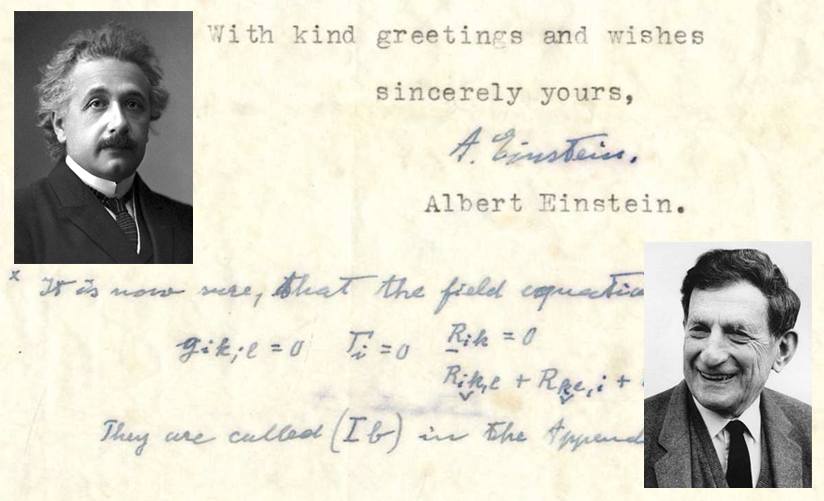 With kind greetings and wishes
sincerely yours,
A. Einstein.
Albert Einstein.
x It is now sure, that the field equatio
gik;l = 0 Γi = 0 Rik = 0
Rik,l + Rkl,i +
They are called (Ib) in the Append